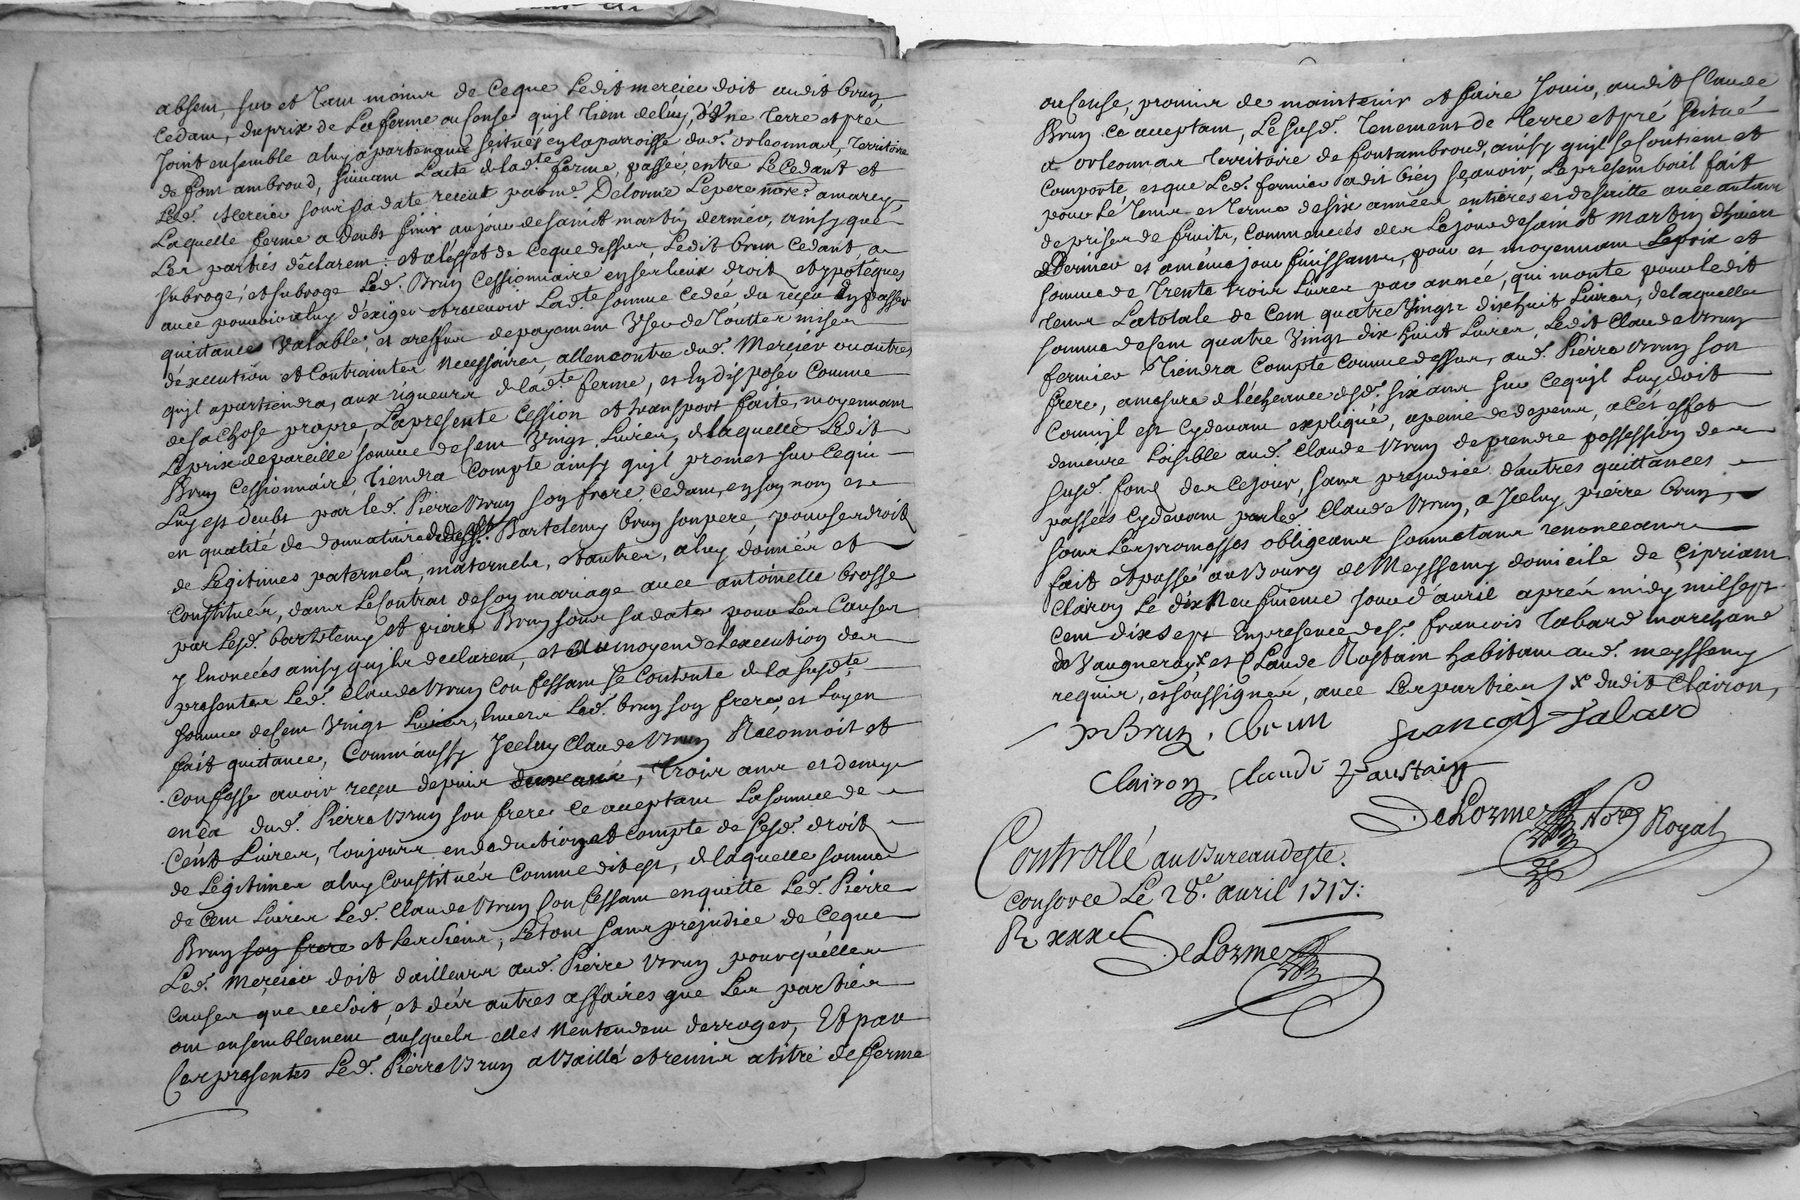 absent, sur et tant moins de ceque Ledit mercier doit audit brun
Cedant, du prix de La ferme ou Cense qujl tient deluy, d'une terre et pré
Joint ensemble aluy apartenant scitués en la parroisse dud. orleonnas, territoire
de font ambroud, suivant L'acte de lad.te ferme, passée entre LeCedant et
Led. Mercier sous sa date receüt par me Delorme Lepere no.re
Laquelle ferme a deubt finir au jour de saint martin dernier, ainsy que
Les parties declarent, et a l'effet de ceque dessus Ledit brun cedant a
subrogé, et subroge Led. Brun Cessionnaire en ses lieux droit et ypotéques
avec pouvoir aluy d'éxiger et recevoir Lad.te somme cedée, du reçeu En passer
quittances valables, et a reffus de payement User de touttes mises
d'éxecution et contraintes Necessaires, allencontre dud. Mercier ou autres
qujl apartiendra, aux rigueurs de lad.te ferme, et En disposer Comme
de sa chose propre, La presente Cession et transport faite, moyennant
Le prix de pareille somme de Cent Vingt Livres, de laquelle Ledit
Brun Cessionnaire, tiendra Compte ainsy qujl promet sur Cequi
Luy est deubt par led. Pierre Brun son frere, cedant, en son nom et
en qualité de donnataire Bartelemy brun son pere, pour ses droit
de Legitimes paternels, maternels, et autres, aluy donnés et
Constitués, dans Le Contrat de son mariage avec antoinette brosse
par Lesd. bartelemy et pierre Brun sous sa date pour Les Causes
y Enoncées ainsy qujls declarent, et au moyen et execution des
presentes Led. Claude Brun Confessant se Contente de la susd.te
somme de Cent Vingt Livres, Envers Led. brun son frere, et Luy en
fait quittance, Comm'aussy Jceluy Claude Brun Reconnoit et
Confesse avoir reçeu depuis , trois ans et demy
en ça dud. Pierre Brun son frere ce aceptant La somme de
Cent Livres, toujours en deduction et compte de sesd. droit
de Legitimes aluy Constitués Comme dit est, de laquelle somme
de Cent Livres Led. Claude Brun Confessant en quitte Led. Pierre
Brun son frere et Les siens, Le tout sans prejudice de Ceque
Led. Mercier doit d'ailleurs aud. Pierre Brun pour quélles
Causes que ce soit, et des autres affaires que Les parties
ont ensemblement, ausquels elles N'entendent derroger, Et par
Ces presentes Led. Pierre Brun a Baillé et remis a titre de ferme
ou Cense, promis de maintenir et faire Jouir, audit Claude
Brun Ce aceptant, Le susd. tenement de terre et pré scitué
a orleonnas territoire de fontambroud, ainsy qujl se contient et
Comporte, et que Led. fermier a dit bien sçavoir, Le present bail fait
pour Le tems et terme de six années entieres et desuitte avec autant
de prises de fruits, Commencés des Le jour de saint Martin d'hiver
dernier et a méme jour finissant, pour et moyennant Le prix et
somme de trente trois Livres par année, qui monte pour ledit
tems La totale de Cent quatre Vingts dix huit Livres, de laquelle
somme de Cent quatre Vingt dix huit Livres, Ledit Claude Brun
fermier tiendra Compte comme dessus, aud. Pierre Brun son
frere, a mesure de l'écheance desd. six ans sur Cequjl Luy doit
Comm'jl est Cydevant expliqué, apeine de depens, a Cét effet
demeure Loisible aud. Claude Brun de prendre possession du
susd. fond des Cejour, sans prejudice d'autres quittances
passées Cydevant par led. Claude Brun, a Jceluy pierre brun,
sous Les promesses obligeant soumetant renonceant
fait et passé au Bourg de Meyssemy domicile de Cipriam
Clairon Le dix Neufvieme jour d'avril aprés midy mil sept
Cent dix sept En presence de s.r francois tabard marchand
de Vaugneray X et Claude Rostain habitant aud. meyssemy
requis, et soussignés, avec Les parties X dudit Clairon,
P Brun, C brun francois Tabard
Clairon, Claude
DeLorme No.re Royal
Controllé au Bureau deste.
consorce Le 28.e avril 1717:
DeLorme